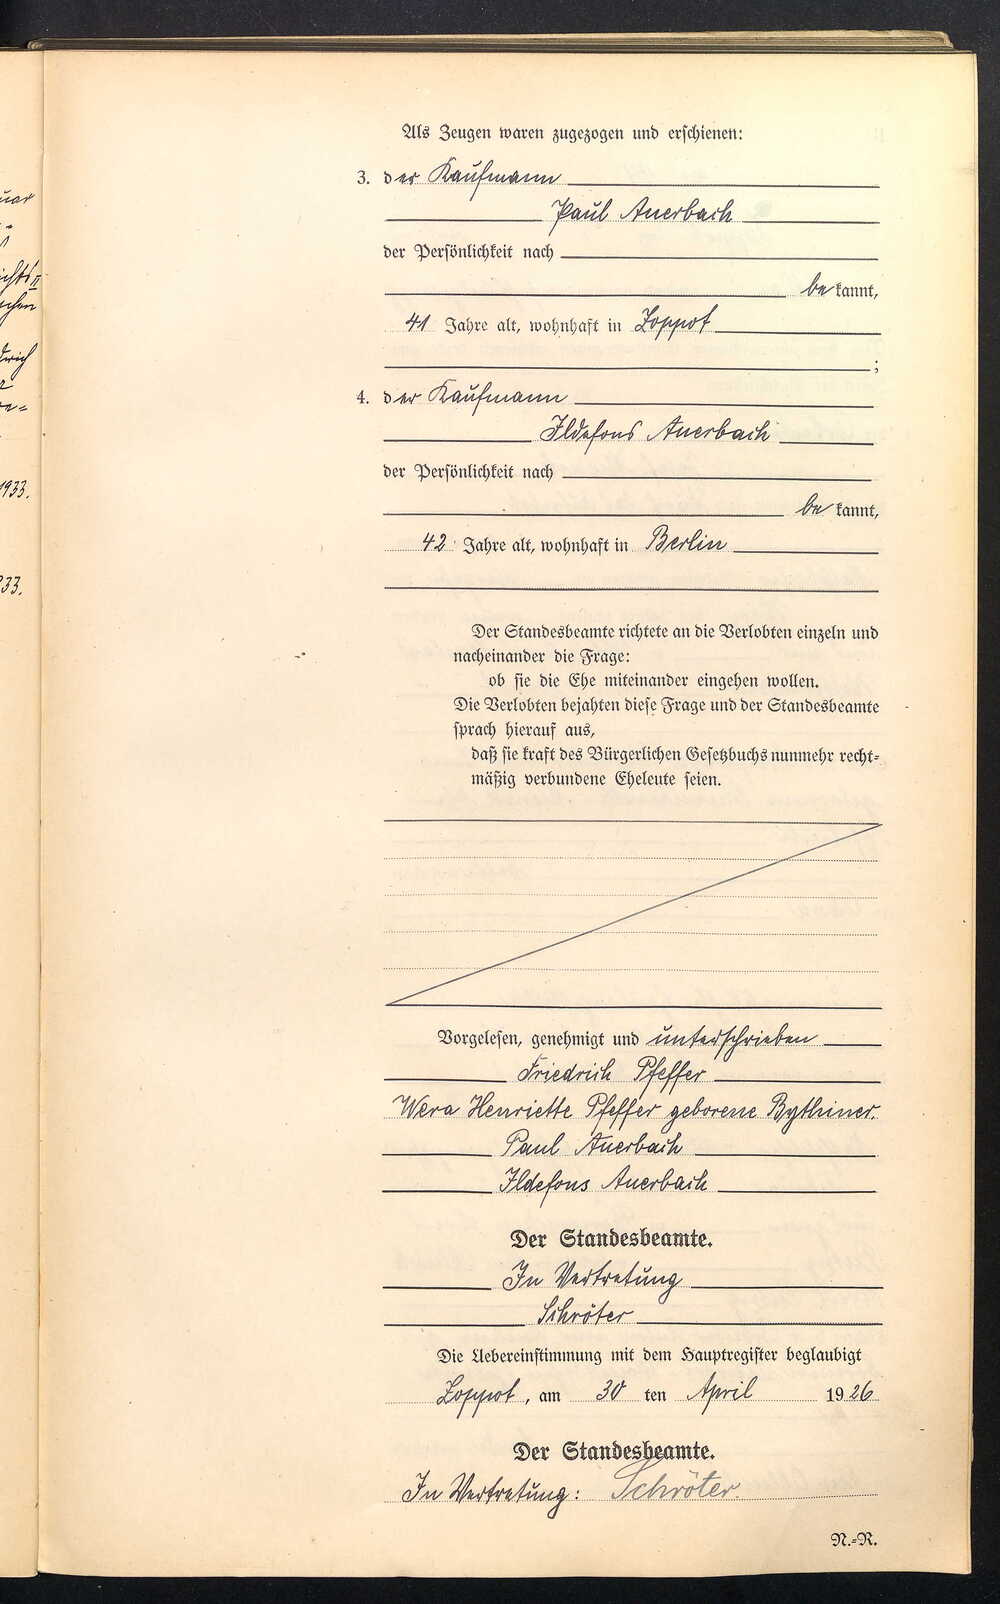 Als Zeugen waren zugezogen und erschienen:
3. der Kaufmann
Paul Auerbach
der Persönlichkeit nach
bekannt,
41 Jahre alt, wohnhaft in Zoppot
;
4. der Kaufmann
Ildefons Auerbach
der Persönlichkeit nach
bekannt,
42 Jahre alt, wohnhaft in Berlin
Der Standesbeamte richtete an die Verlobten einzeln und
nacheinander die Frage:
ob sie die Ehe miteinander eingehen wollen.
Die Verlobten bejahten diese Frage und der Standesbeamte
sprach hierauf aus,
daß sie kraft des Bürgerlichen Gesetzbuchs nunmehr recht-
mäßig verbundene Eheleute seien.
Vorgelesen, genehmigt und unterschrieben
Friedrich Pfeffer
Wera Henriette Pfeffer geborene Bythiner.
Paul Auerbach
Ildefons Auerbach
Der Standesbeamte.
In Vertretung
Schröter
Die Uebereinstimmung mit dem Hauptregister beglaubigt
Zoppot, am 30 ten April 1926
Der Standesbeamte.
In Vertretung: Schröter.
N.-R.
1933.